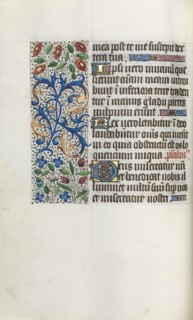 mea post te me suscepit dex
tera tua
Ipsi vero in vanum que
sierunt animam meam introi
bunt in inferiora terre traden
tur in manus gladii partes
vulpium erunt
Rex vero letabitur in deo
laudabuntur omnes qui iurant
in eo quia obstructum est os lo
quentium iniqua psalmus
Deus misereatur nri
et benedicat nobis il
luminet vultum suum sup nos
et misereatur nostri